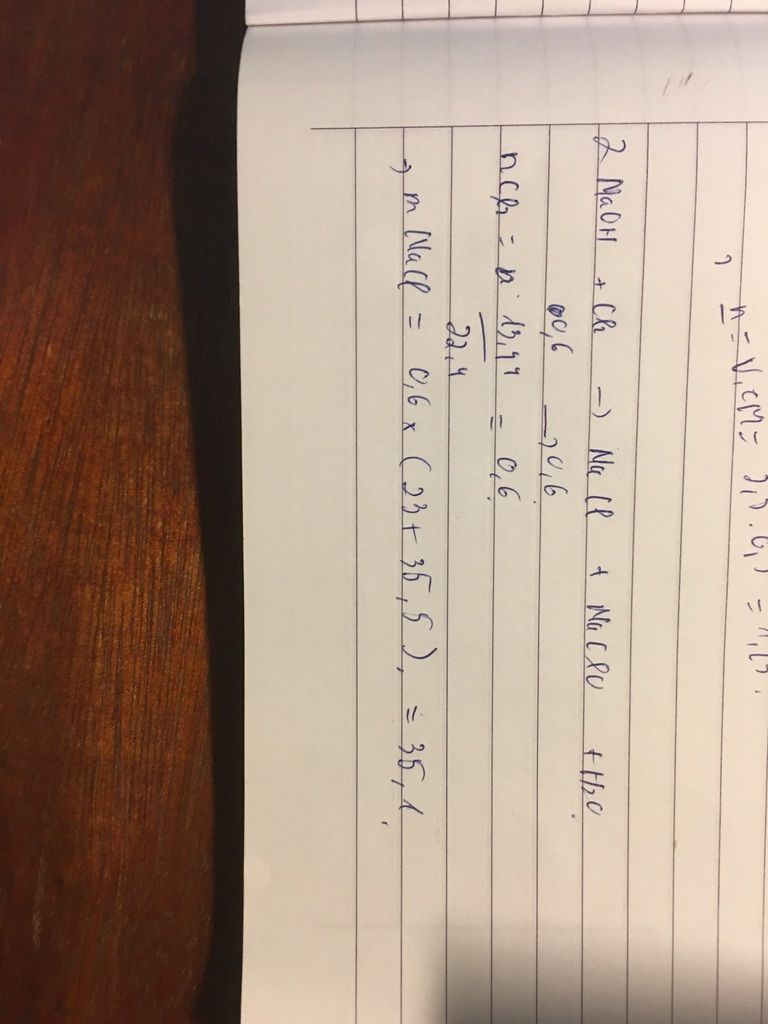 n = V.CM =
2 NaOH + Cl2 → NaCl + NaClO + H2O
0,6 → 0,6
nCl2 = 13,44 = 0,6
22,4
→ m NaCl = 0,6 x (23 + 35,5). = 35,1